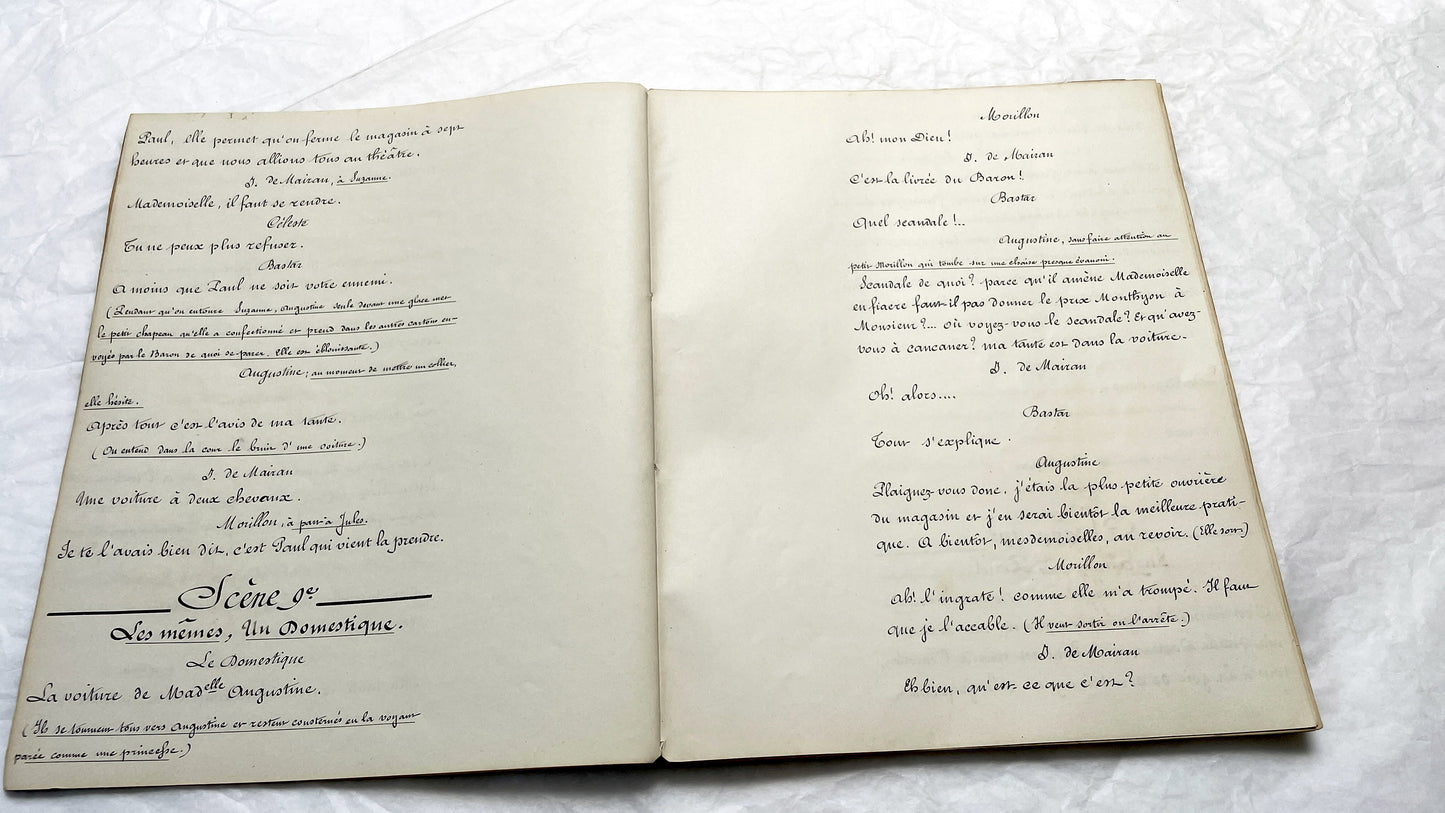 Paul, elle permet qu'on ferme le magasin à sept
heures et que nous allions tous au théâtre.
J. de Mairan, à Suzanne.
Mademoiselle, il faut se rendre.
Céleste
Tu ne peux plus refuser.
Bastar
A moins que Paul ne soit votre ennemi.
(Pendant qu'on entoure Suzanne, Augustine seule devant une glace met
le petit chapeau qu'elle a confectionné et prend dans les autres cartons en-
voyés par le Baron de quoi se parer. Elle est éblouissante.)
Augustine; au moment de mettre un collier,
elle hésite.
Après tout c'est l'avis de ma tante.
(On entend dans la cour le bruit d'une voiture.)
J. de Mairan
Une voiture à deux chevaux.
Morillon, à part à Jules.
Je te l'avais bien dit, c'est Paul qui vient la prendre.
Scène 9e
Les mêmes, Un Domestique.
Le Domestique
La voiture de Madelle Augustine.
(Ils se tournent tous vers Augustine et restent consternés en la voyant
parée comme une princesse.)
Morillon
Ah! mon Dieu!
J. de Mairan
C'est la livrée du Baron!
Bastar
Quel scandale!...
Augustine, sans faire attention au
petit Morillon qui tombe sur une chaise presque évanoui.
Scandale de quoi? parce qu'il amène Mademoiselle
en fiacre faut-il pas donner le prix Monthyon à
Monsieur?... où voyez-vous le scandale? Et qu'avez-
vous à cancaner? ma tante est dans la voiture.
J. de Mairan
Oh! alors....
Bastar
Tout s'explique.
Augustine
Plaignez-vous donc, j'étais la plus petite ouvrière
du magasin et j'en serai bientôt la meilleure prati-
que. A bientôt, mesdemoiselles, au revoir. (Elle sort)
Morillon
Ah! l'ingrate! comme elle m'a trompé. Il faut
que je l'accable. (Il veut sortir on l'arrête.)
J. de Mairan
Eh bien, qu'est-ce que c'est?